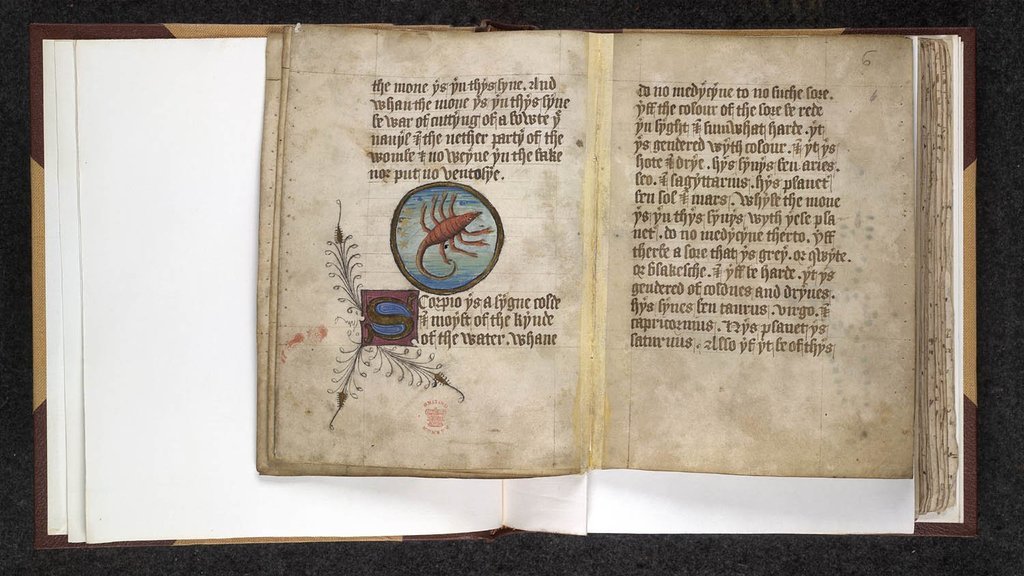 the mone ys yn thys syne. And
whan the mone ys yn thys syne
be war of cuttyng of a bowte þe
nauyle & the nether party of the
wombe & no veyne yn the bake
nor put no ventosye.
Scorpio ys a sygne colde
& moyst of the kynde
of the water. whane
6
do no medycyne to no suche sore.
yff the colour of the sore be rede
yn syght & sumwhat harde. yt
ys gendered wyth colour. & yt ys
hote & drye. hys synys ben aries.
leo. & sagyttarius. hys planet
ben sol & mars. Whyle the mone
ys yn thys synys wyth yese pla
net. do no medycyne therto. yff
therbe a sore that ys grey. or qwyte.
or blakesche. & yff be harde. yt ys
gendered of coldnes and drynes.
hys synes ben taurus. virgo. &
capricornius. Nys planet ys
saturnus. Also yf yt be of thys